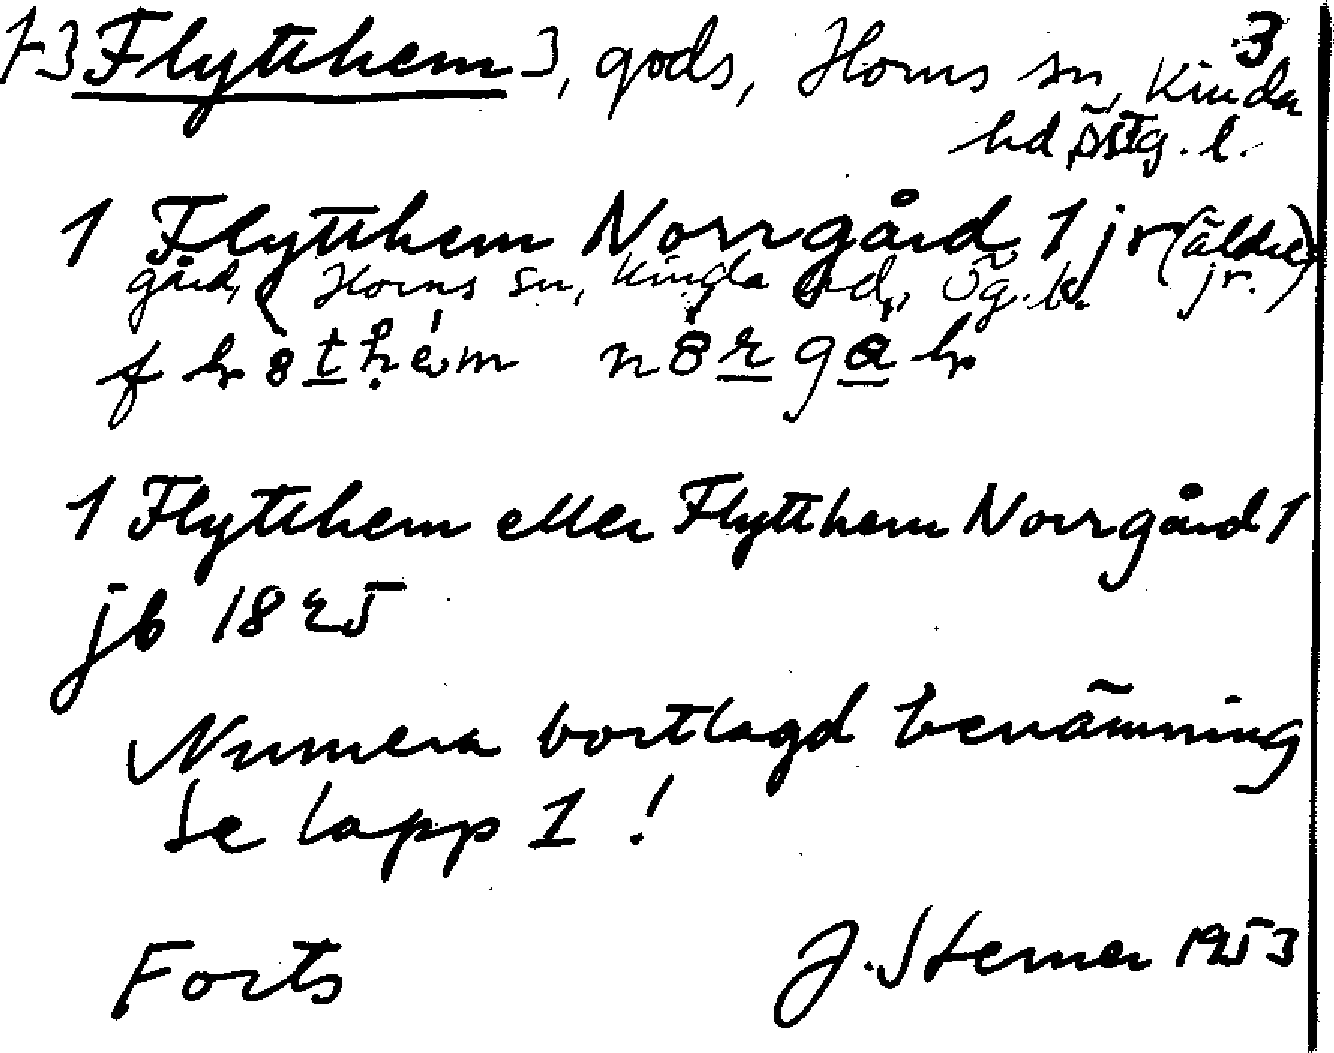 3
[-] Flytthem], gods, Horns sn, Kinda
hd Östg. l.
1 Flytthem Norrgård 1 jr (äldre jr.)
gård, Horns sn, Kinda hd, Ög. l.
1 Flytthem eller Flytthem Norrgård 1
jb 1825
Numera bortlagd benämning
Se lapp 1 !
Forts J. Sterner 1953